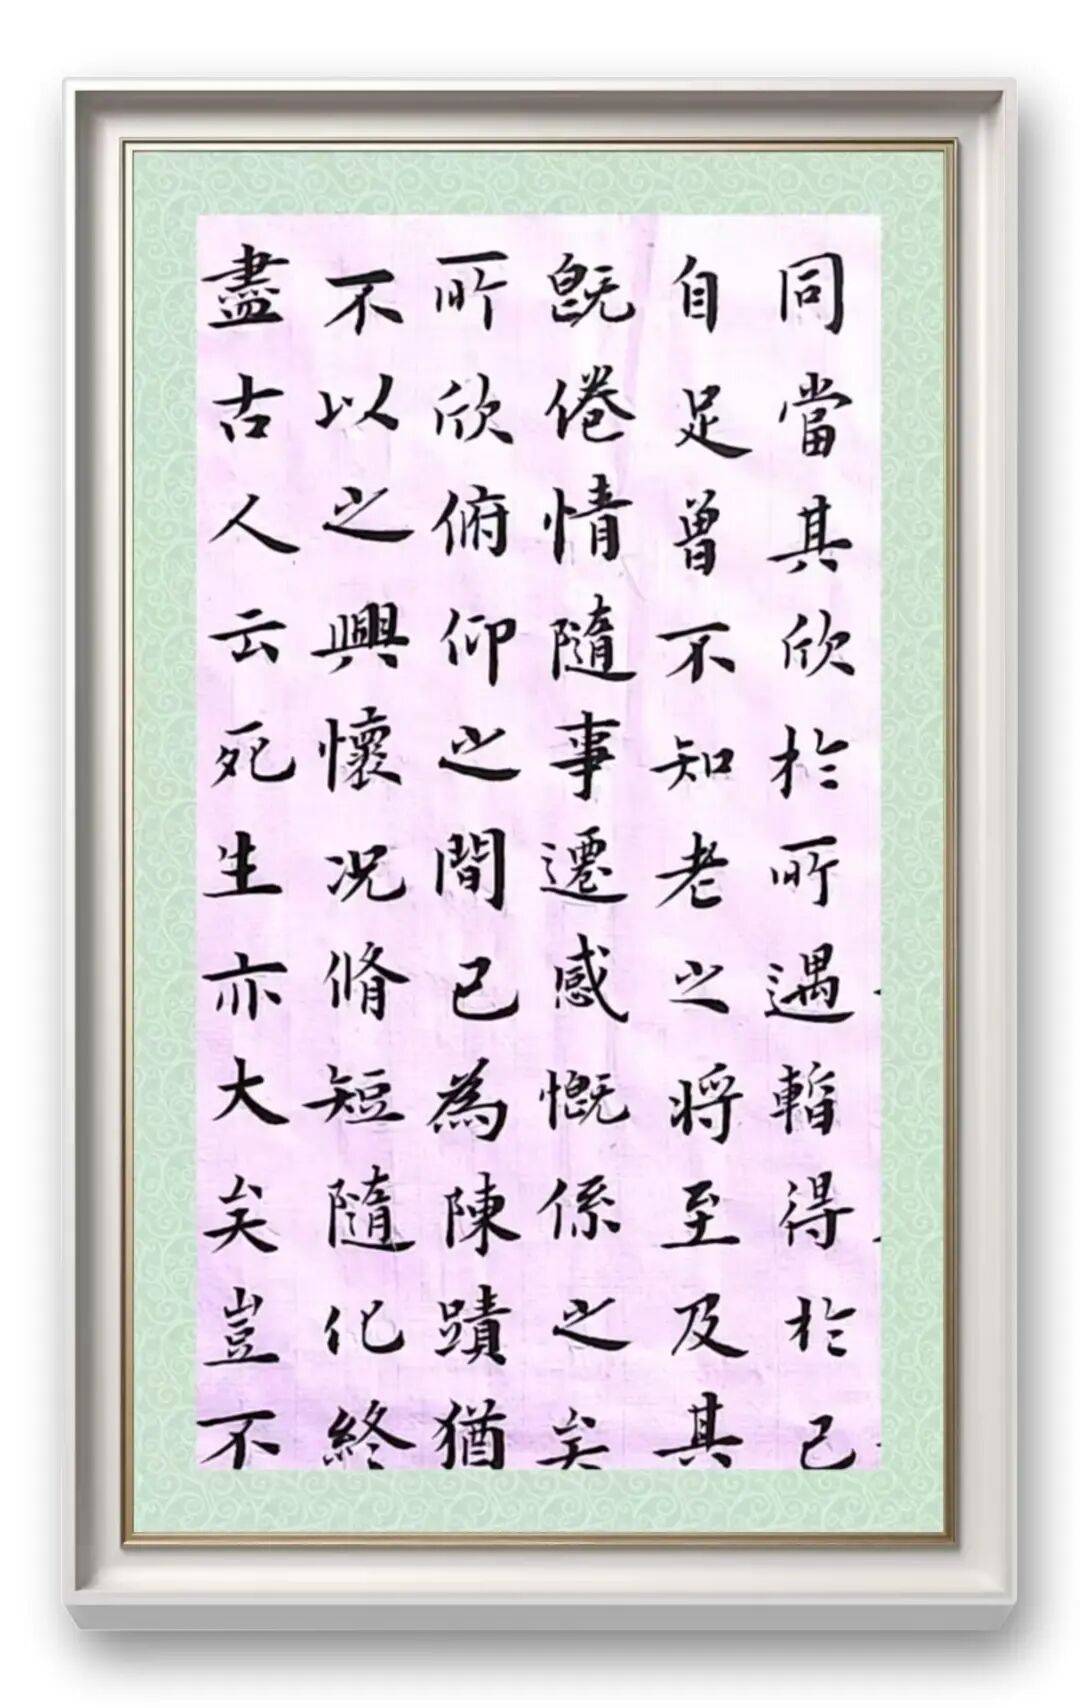 同當其欣於所遇暫得於己
自足曾不知老之將至及其
既倦情隨事遷感慨係之矣
所欣俯仰之間已為陳蹟猶
不以之興懷況脩短隨化終
盡古人云死生亦大矣豈不